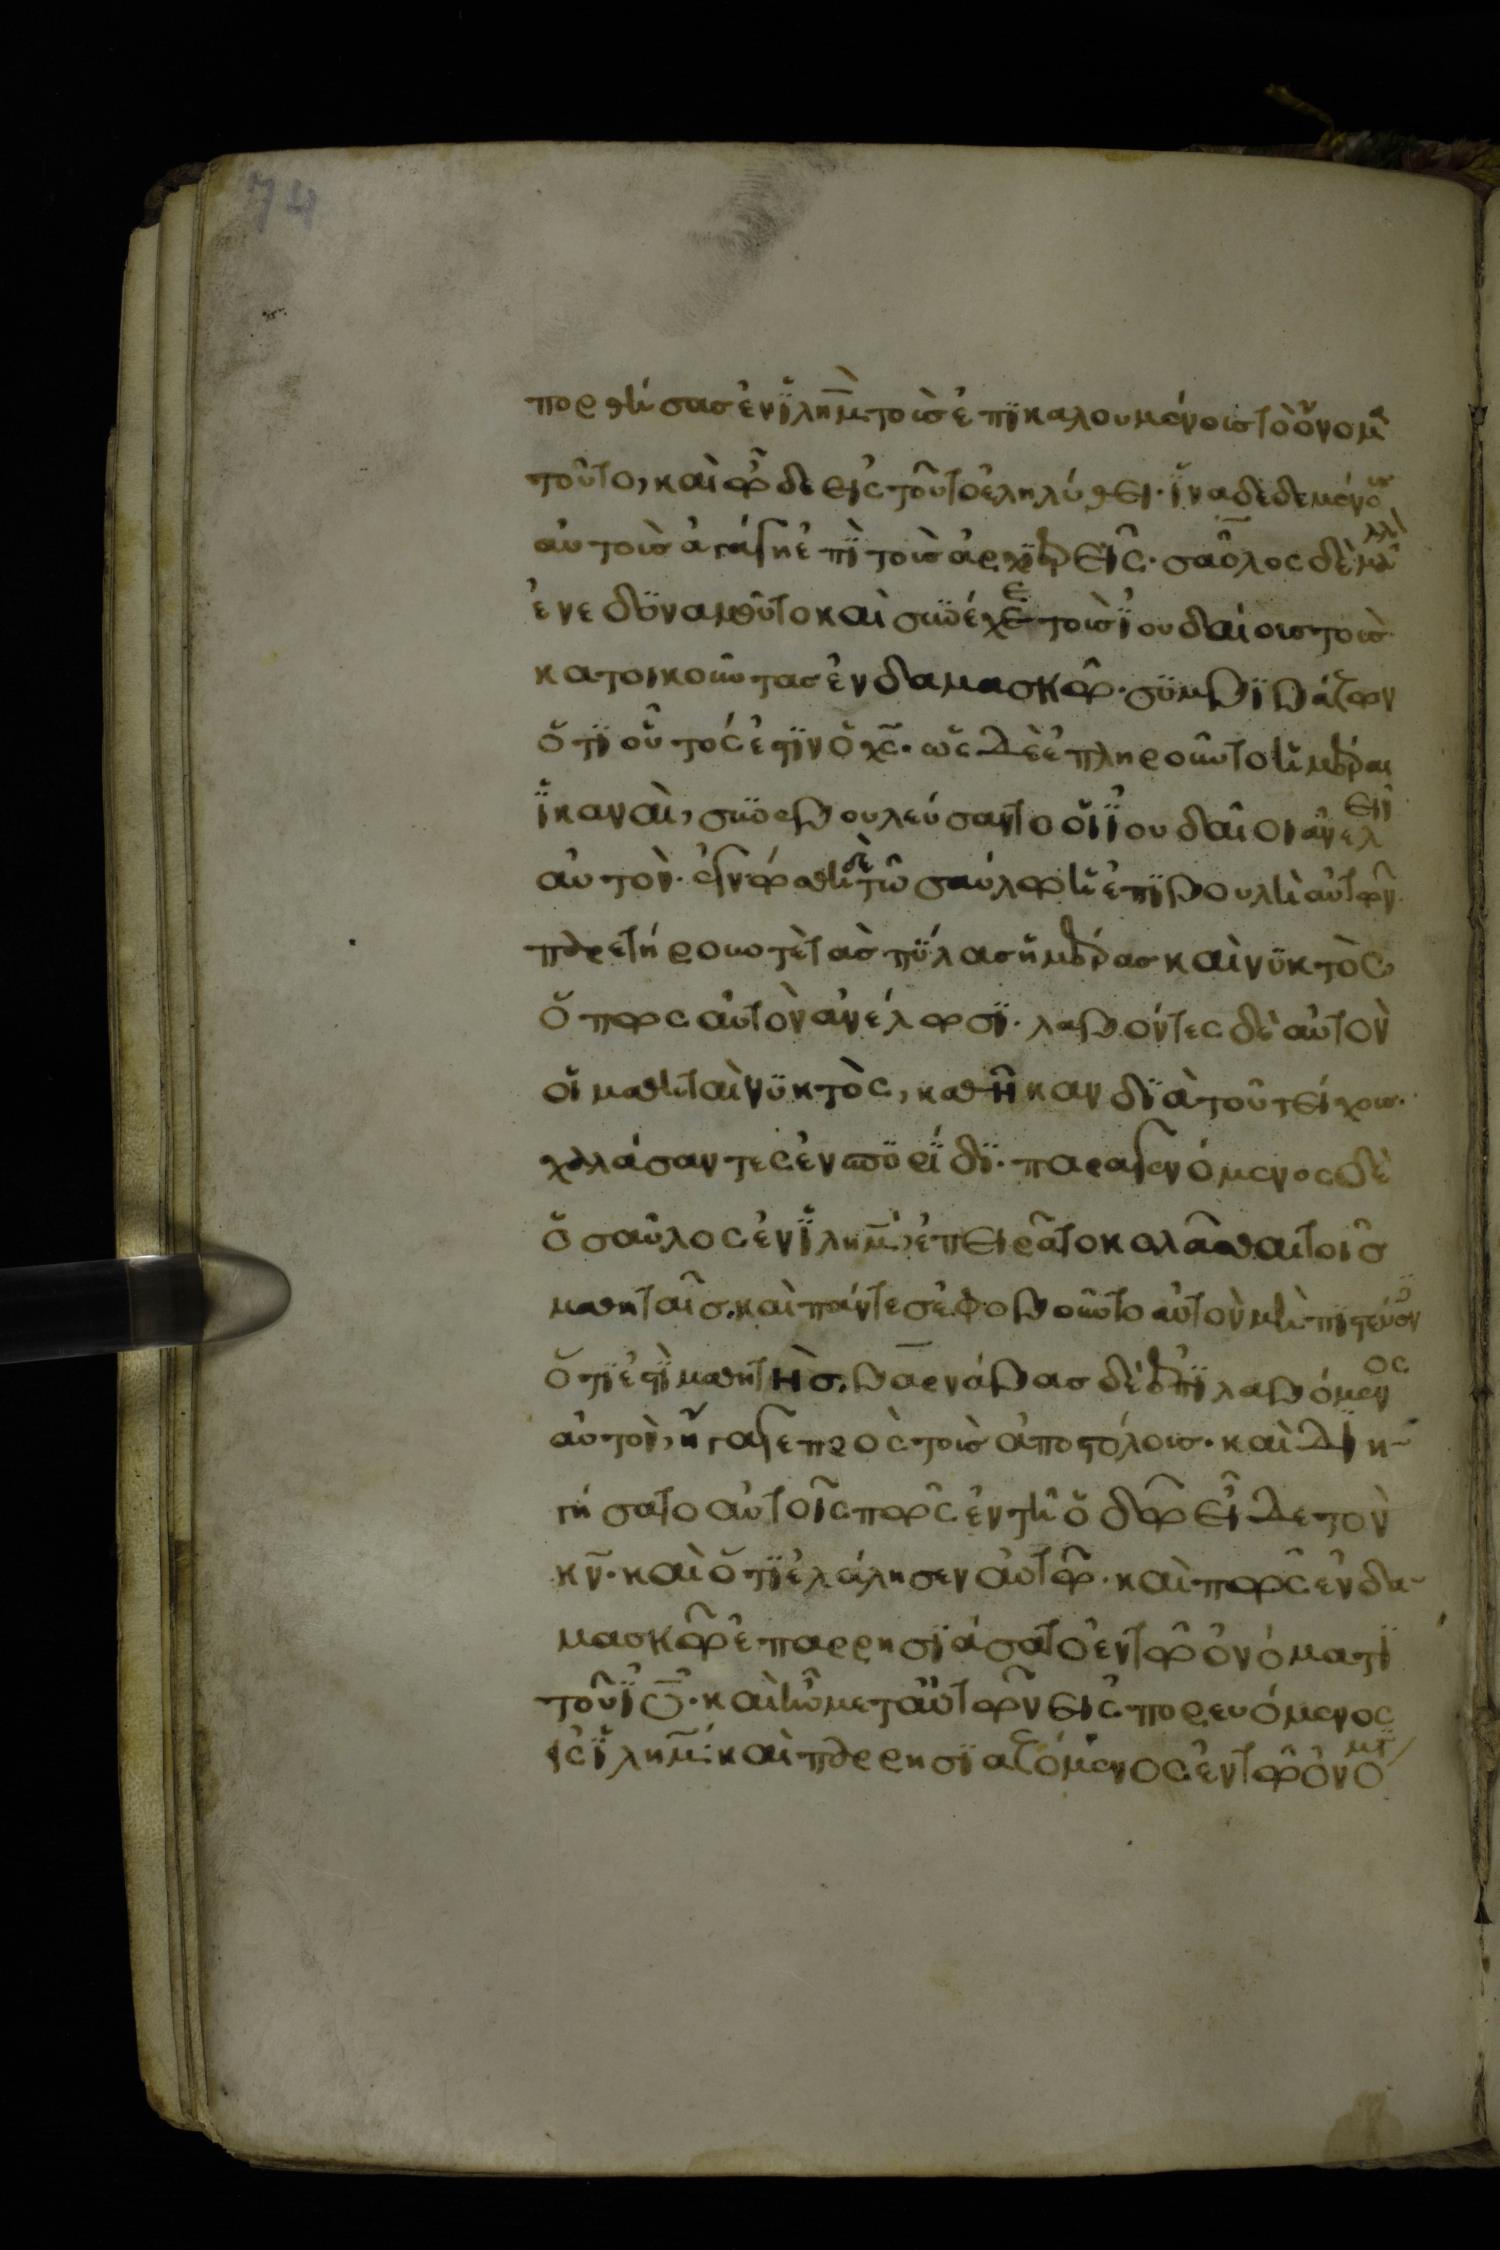 74
πορθήσας ἐν ϊλη̅μ̅ τοὺς ἐπϊκαλουμένους τὸ ὄνομα
τοῦτο, καὶ ὧδε εἰς τοῦτο ἐληλύθει· ἵνα δεδεμένους
αὐτοὺς ἀγάγη ἐπῒ τοὺς ἀρχϊερεῖς· σαῦλος δὲ μᾶλλ
ἐνεδϋναμοῦτο καὶ συνέχεε τοὺς ϊουδαίους τοὺς
κατοικοῦντας ἐν δαμασκῶ· σϋμβϊβάζων
ὅτϊ οὗτός ἐστϊν ὁ χ̅ς̅· ὡς δὲ ἐπληροῦντο ἡμέραι
ϊκαναὶ, συνεβουλεύσαντο οἱ ϊουδαῖοι ἀνελεῖν
αὐτὸν· ἐγνώσθη δὲ τῶ σαύλω ἡ ἐπϊβουλὴ αὐτῶν
παρετήρουν τὲ τὰς πϋλας ἡμέρας καὶ νϋκτὸς
ὅπως αὐτὸν ἀνέλωσϊ· λαβόντες δὲ αὐτὸν
οἱ μαθηταὶ νϋκτὸς, καθῆκαν δϊὰ τοῦ τείχους
χαλάσαντες ἐν σπϋρίδϊ· παραγενόμενος δὲ
ὁ σαῦλος ἐν ϊλη̅μ̅ ἐπειρᾶτο κολλᾶσθαι τοῖς
μαθηταῖς. καὶ πάντες ἐφοβοῦντο αὐτὸν μὴ πϊστεύον
ὅτϊ ἐστῒ μαθητὴς. βαρνάβας δὲ ἐπϊλαβόμενος
αὐτὸν, ἤγαγε πρὸς τοὺς ἀποστόλους· καὶ δϊη
γήσατο αὐτοῖς πῶς ἐν τῆ ὁδῶ εἶδε τὸν
κ̅ν̅· καὶ ὅτϊ ἐλάλησεν αὐτῶ· καὶ πῶς ἐν δα
μασκῶ ἐπαρρησϊάσατο ἐν τῶ ὀνόματϊ
τοῦ ϊ̅υ̅· καὶ ἦν μετ' αὐτῶν εἰσπορευόμενος
εἰς ϊλη̅μ̅· καὶ παρρησϊαζόμενος ἐν τῶ ὀνόματ